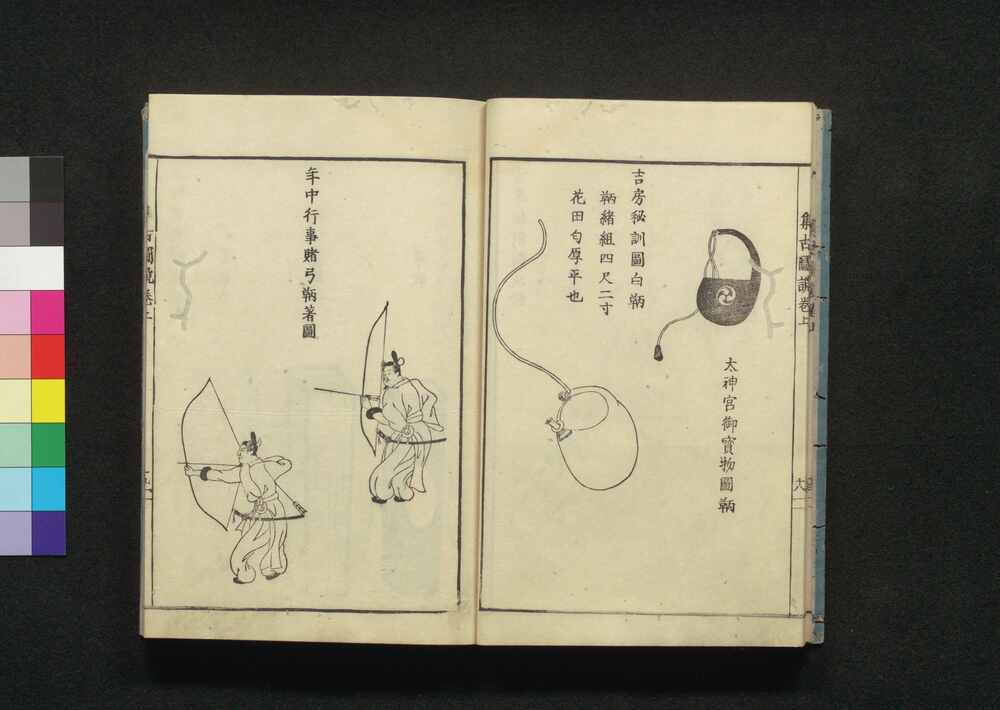 集古圖説卷上
太神宮御寳物圖鞆
吉房秘訓圖白鞆
鞆緒組四尺二寸
花田匂厚平也
年中行事賭弓鞆著圖